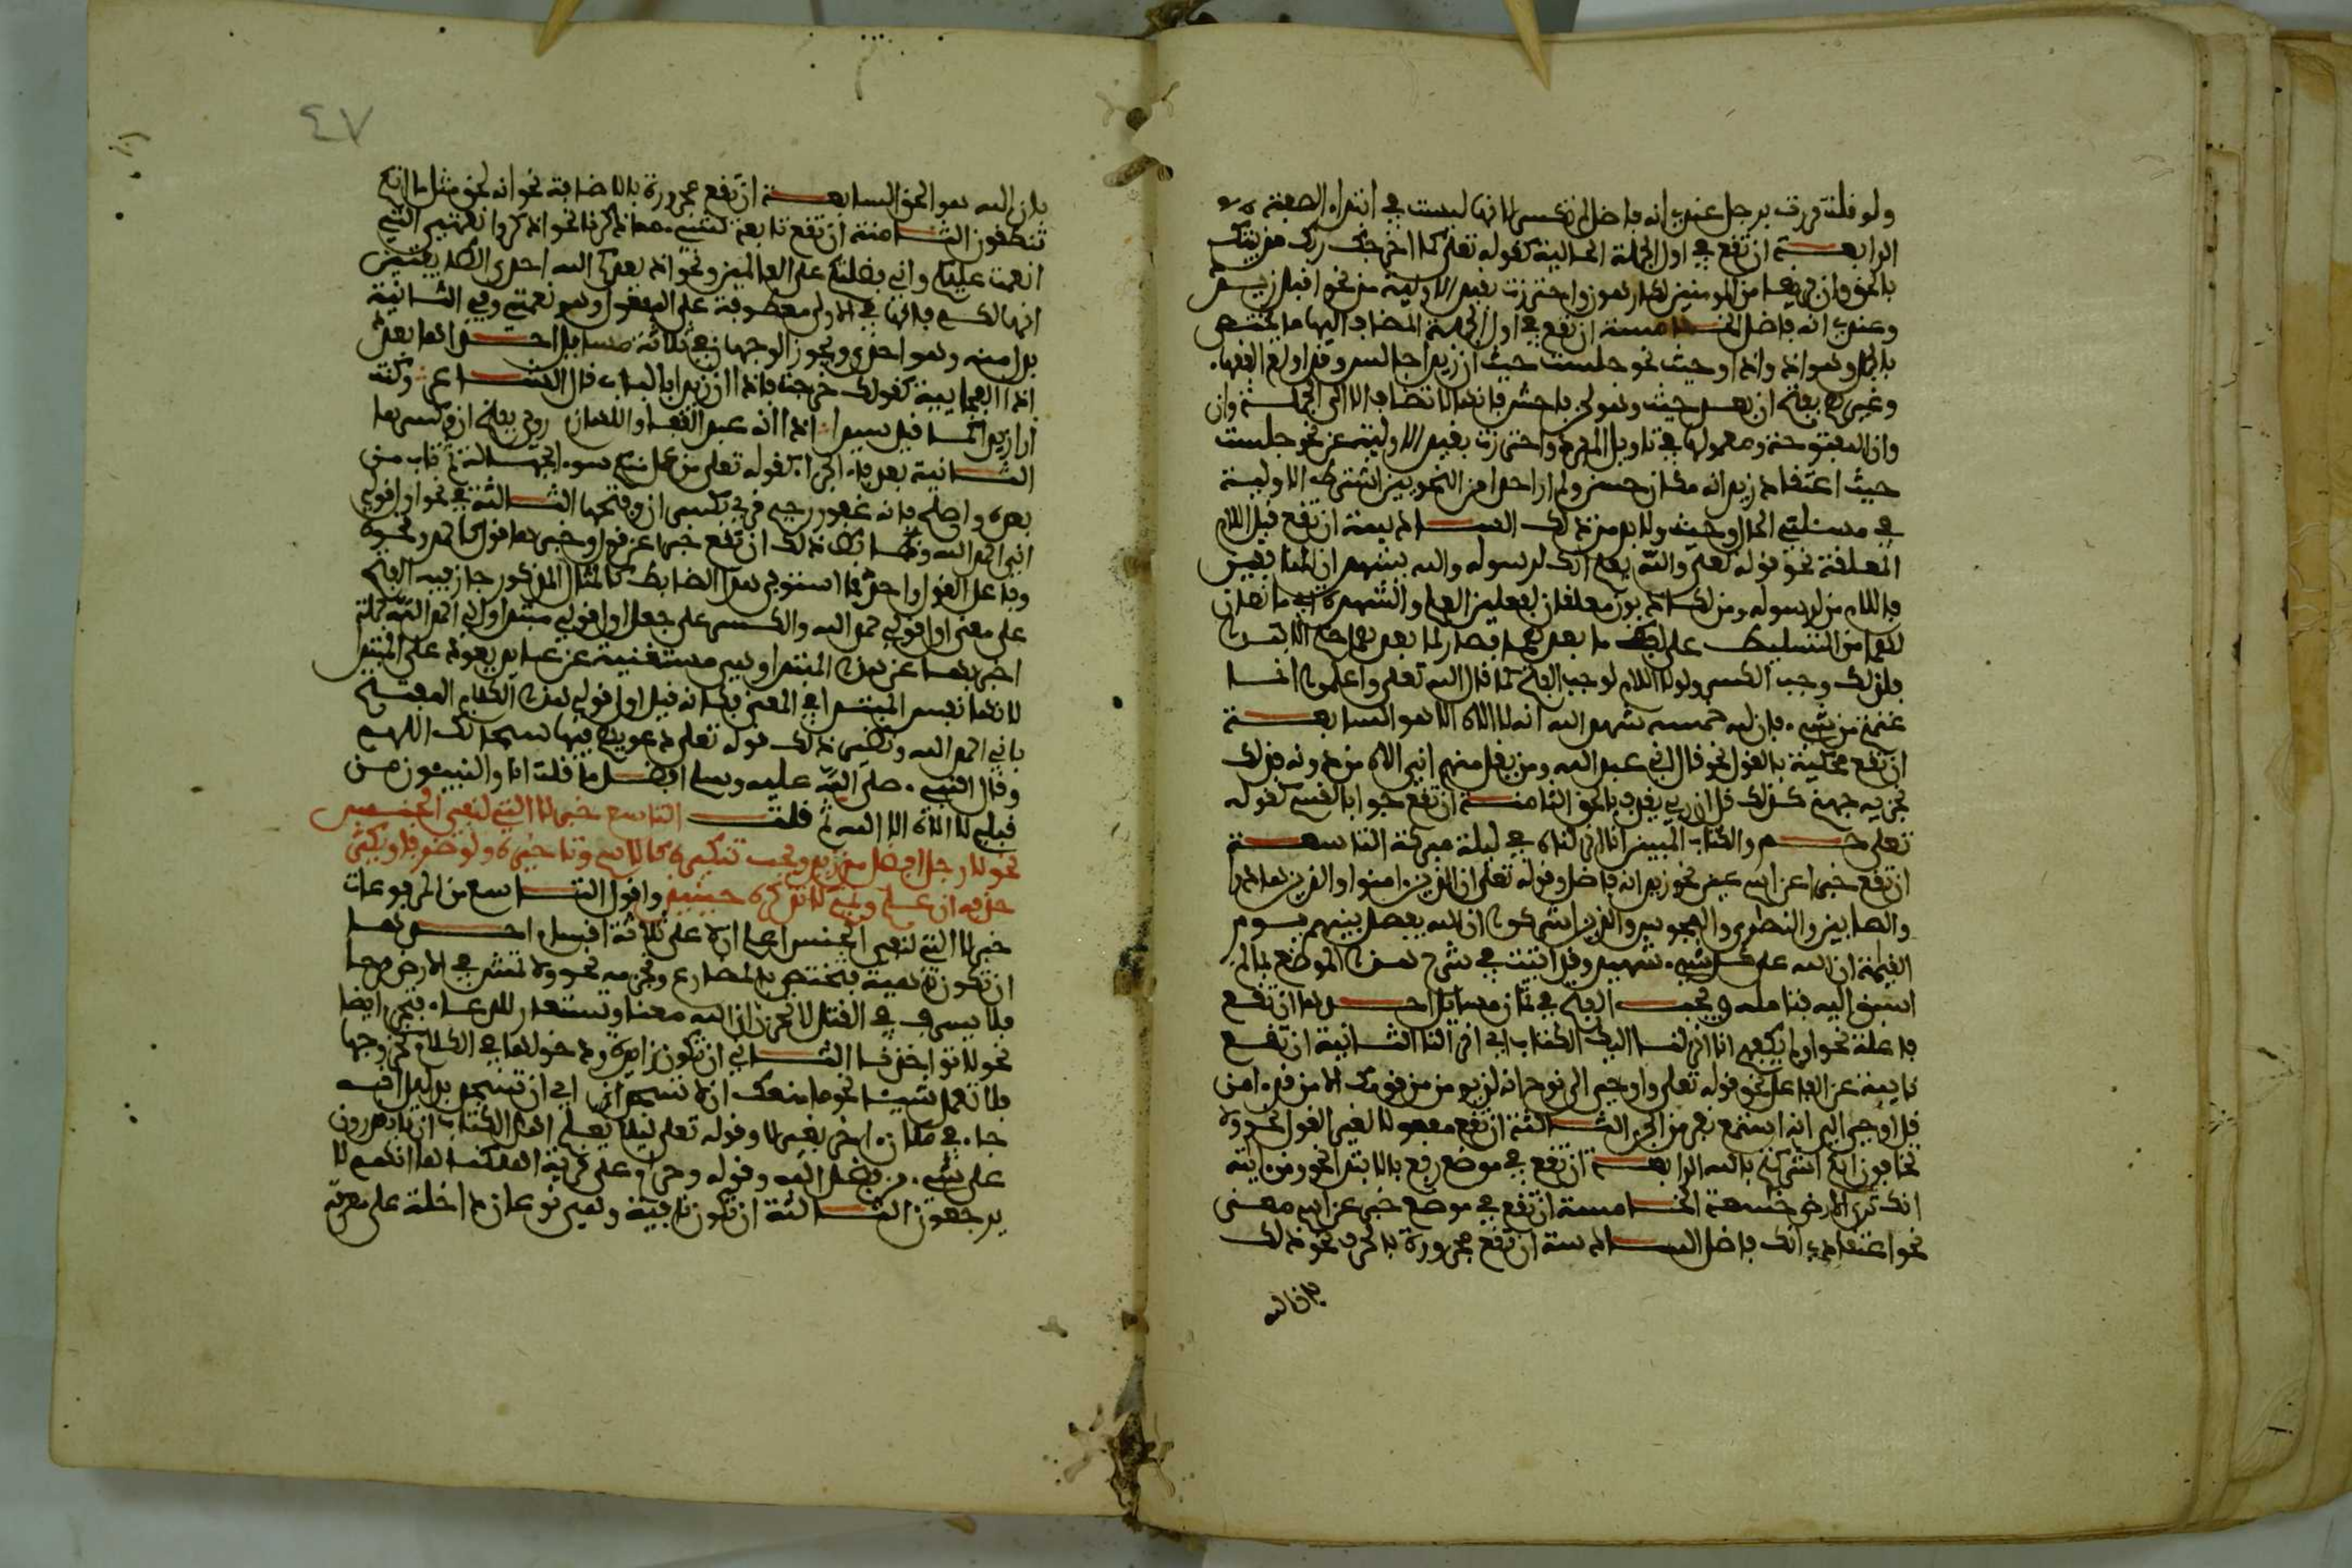 ولو قلت مررت برجل عندي انه فاضل لم تكسر لانها ليست في ابتداء الصفة
الرابعة ان تقع في اول الجملة الحالية كقوله تعلى كما اخرجك ربك من بيتك
بالحق وان فريقا من المومنين لكارهون واحترزت بقيد الاولية من نحو اقبل زيد
وعندي انه فاضل الخامسة ان تقع في اول الجملة المضاف اليها ما يختص
بالجمل وهو اذ واذا وحيث نحو جلست حيث ان زيدا جالس وقد اولع الفقهاء
وغيرهم بفتح ان بعد حيث وهو لحن فاحش فانها لا تضاف الا الى الجملة وان
وان المفتوحة ومعمولاها في تاويل المفرد واحترزت بقيد الاولية عن نحو جلست
حيث اعتقاد زيد انه مكان حسن ولم ار احدا من النحويين اشترط الاولية
في مسئلتي الحال وحيث ولا بد من ذلك السادسة ان تقع قبل اللام
المعلقة نحو قوله تعلى والله يعلم انك لرسوله والله يشهد ان المنافقين
فاللام من لرسوله ومن لكاذبون معلقان لفعلين العلم والشهادة اي مانعان
لهما من التسليط على لفظ ما بعدهما فصار لما بعدهما حكم الابتدا
فلذلك وجب الكسر ولولا اللام لوجب الفتح كما قال الله تعلى واعلموا انما
غنمتم من شيء فان لله خمسه شهد الله انه لا الاه الا هو السابعة
ان تقع محكية بالقول نحو قال اني عبد الله ومن يقل منهم اني الاه من دونه فذلك
نجزيه جهنم كذلك قل ان ربي يقذف بالحق الثامنة ان تقع جوابا لقسم كقوله
تعلى حم والكتاب المبين انا انزلناه في ليلة مبركة التاسعة
ان تقع خبرا عن اسم عين نحو زيد انه فاضل وقوله تعلى ان الذين امنوا والذين هادوا
والصابين والنصرى والمجوس والذين اشركوا ان الله يفصل بينهم يوم
القيمة ان الله على كل شيء شهيد وقد اتيت في شرح هذا الموضع بما لم
اسبق اليه فتامله ويجب الفتح في ثمان مسايل احدها ان تقع
فاعلة نحو اولم يكفهم انا انزلنا اليك الكتاب اي انزالنا الثانية ان تقع
نايبة عن الفاعل نحو قوله تعلى واوحي الى نوح انه لن يومن من قومك الا من قد امن
قل اوحي الي انه استمع نفر من الجن الثالثة ان تقع مفعولا لغير القول نحو ولا
تخافون انكم اشركتم بالله الرابعة ان تقع في موضع رفع بالابتدا نحو ومن اياته
انك ترى الارض خشعة الخامسة ان تقع في موضع خبر عن اسم معنى
نحو اعتقادي انك فاضل السادسة ان تقع مجرورة بالحرف نحو ذلك
بان الله
٤٧
بان الله هو الحق السابعة ان تقع مجرورة بالاضافة نحو انه لحق مثل ما انكم
تنطقون الثامنة ان تقع تابعة لشيء مما ذكرنا نحو اذكروا نعمتي التي
انعمت عليكم واني فضلتكم على العالمين ونحو اذ يعدكم الله احدى الطايفتين
انها لكم فانها في الاولى معطوفة على المفعول وهو نعمتي وفي الثانية
بدل منه وهو احدى ويجوز الوجهان في ثلاثة مسايل احدها بعد
اذا الفجايية كقولك خرجت فاذا ان زيدا بالباب قال الشاعر وكنت
ارى زيدا كما قيل سيدا اذا انه عبد القفا واللهازم روي بفتح ان وكسرها
الثانية بعد فاء الجزاء كقوله تعلى من عمل منكم سوءا بجهالة ثم تاب من
بعده واصلح فانه غفور رحيم قري بكسر ان وفتحها الثالثة في نحو اول قولي
اني احمد الله وضابط ذلك ان تقع خبرا عن قول وخبرها قول كاحمد ونحوه
وفاعل القول واحد فما استوفى هذا الضابط كالمثال المذكور جاز فيه الفتح
على معنى اول قولي حمد الله والكسر على جعل اول قولي مبتدا واني احمد الله جملة
اخبر بها عن هذا المبتدا وهي مستغنية عن عايد يعود على المبتدا
لانها نفس المبتدا في المعنى فكانه قيل اول قولي هذا الكلام المفتتح
باني احمد الله ونظير ذلك قوله تعلى دعويهم فيها سبحانك اللهم
وقال النبي صلى الله عليه وسلم افضل ما قلته انا والنبيون من
قبلي لا الاه الا الله ثم قلت التاسع خبر لا التي لنفي الجنس
نحو لا رجل افضل من زيد ويجب تنكيره كالاسم وتاخيره ولو ظرفا ويكثر
حذفه ان علم وتميم لا تذكره حينيذ واقول التاسع من المرفوعات
خبر لا التي لنفي الجنس اعلم ان لا على ثلاثة اقسام احدها
ان تكون ناهية فتختص بالمضارع وتجزمه نحو ولا تمش في الارض مرحا
فلا يسرف في القتل لا تحزن ان الله معنا وتستعار للدعاء فتجزم ايضا
نحو لا تواخذنا الثاني ان تكون زايدة دخولها في الكلام كخروجها
فلا تعمل شيئا نحو ما منعك ان لا تسجد اي ان تسجد بدليل انه
جاء في مكان اخر بغير لا وقوله تعلى ليلا يعلم اهل الكتاب ان لا يقدرون
على شيء من فضل الله وقوله وحرام على قرية اهلكناها انهم لا
يرجعون الثالثة ان تكون نافية وهي نوعان داخلة على معرفة